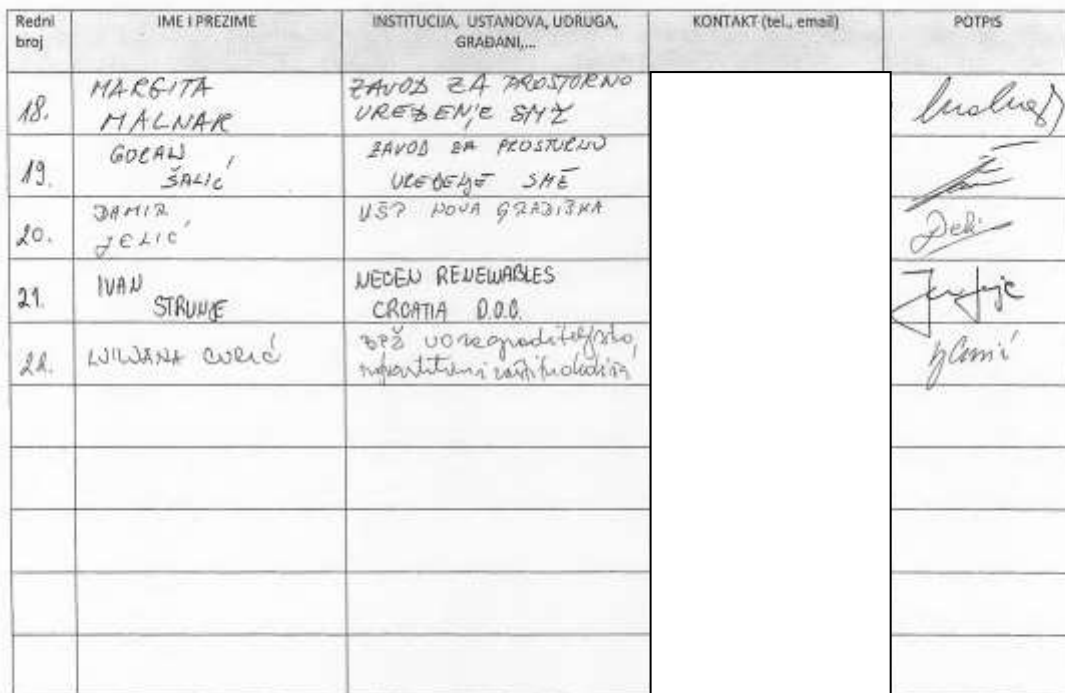 Redni broj
IME I PREZIME
INSTITUCIJA, USTANOVA, UDRUGA, GRAĐANI,...
KONTAKT (tel., email)
POTPIS
18.
MARGITA
MALNAR
ZAVOD ZA PROSTORNO
UREĐENJE SMŽ
19.
GORAN
ŠALIĆ
ZAVOD ZA PROSTORNO
UREĐENJE SMŽ
20.
DAMIR
JELIĆ
UŠP NOVA GRADIŠKA
21.
IVAN
STRUNJE
NEOEN RENEWABLES
CROATIA D.O.O.
22.
LJILJANA CURIĆ
BPŽ